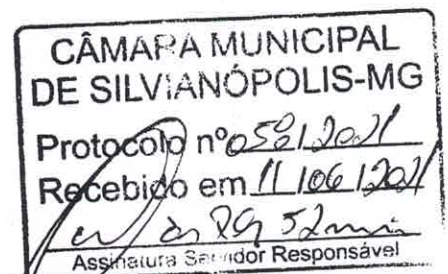 CÂMARA MUNICIPAL
DE SILVIANÓPOLIS-MG
Protocolo nº 058/2021
Recebido em 11/06/2021
às 52min
Assinatura Servidor Responsável